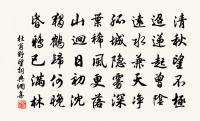 清秋望不極
迢遞起曾陰
遠水兼天淨
孤城隱霧深
葉稀風更落
山迥日初沉
獨鶴歸何晚
昏鴉已滿林
杜甫野望詞典網集